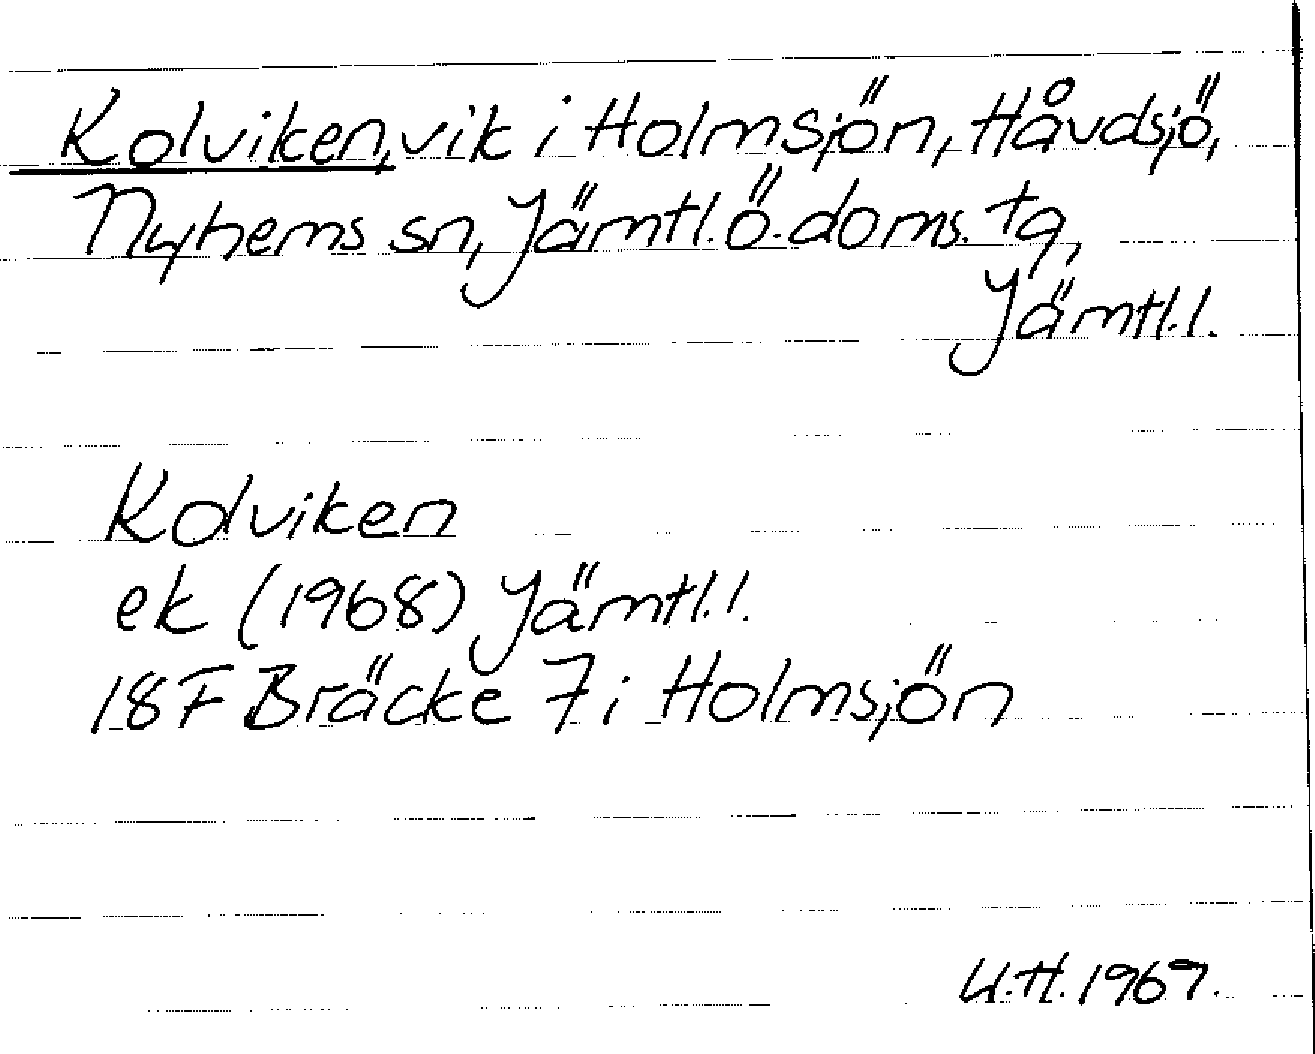 Kolviken, vik i Holmsjön, Håvdsjö,
Nyhems sn, Jämtl.Ö.doms.tg,
Jämtl.l.
Kolviken
ek (1968) Jämtl.l.
18F Bräcke 7 i Holmsjön
U.H. 1969.